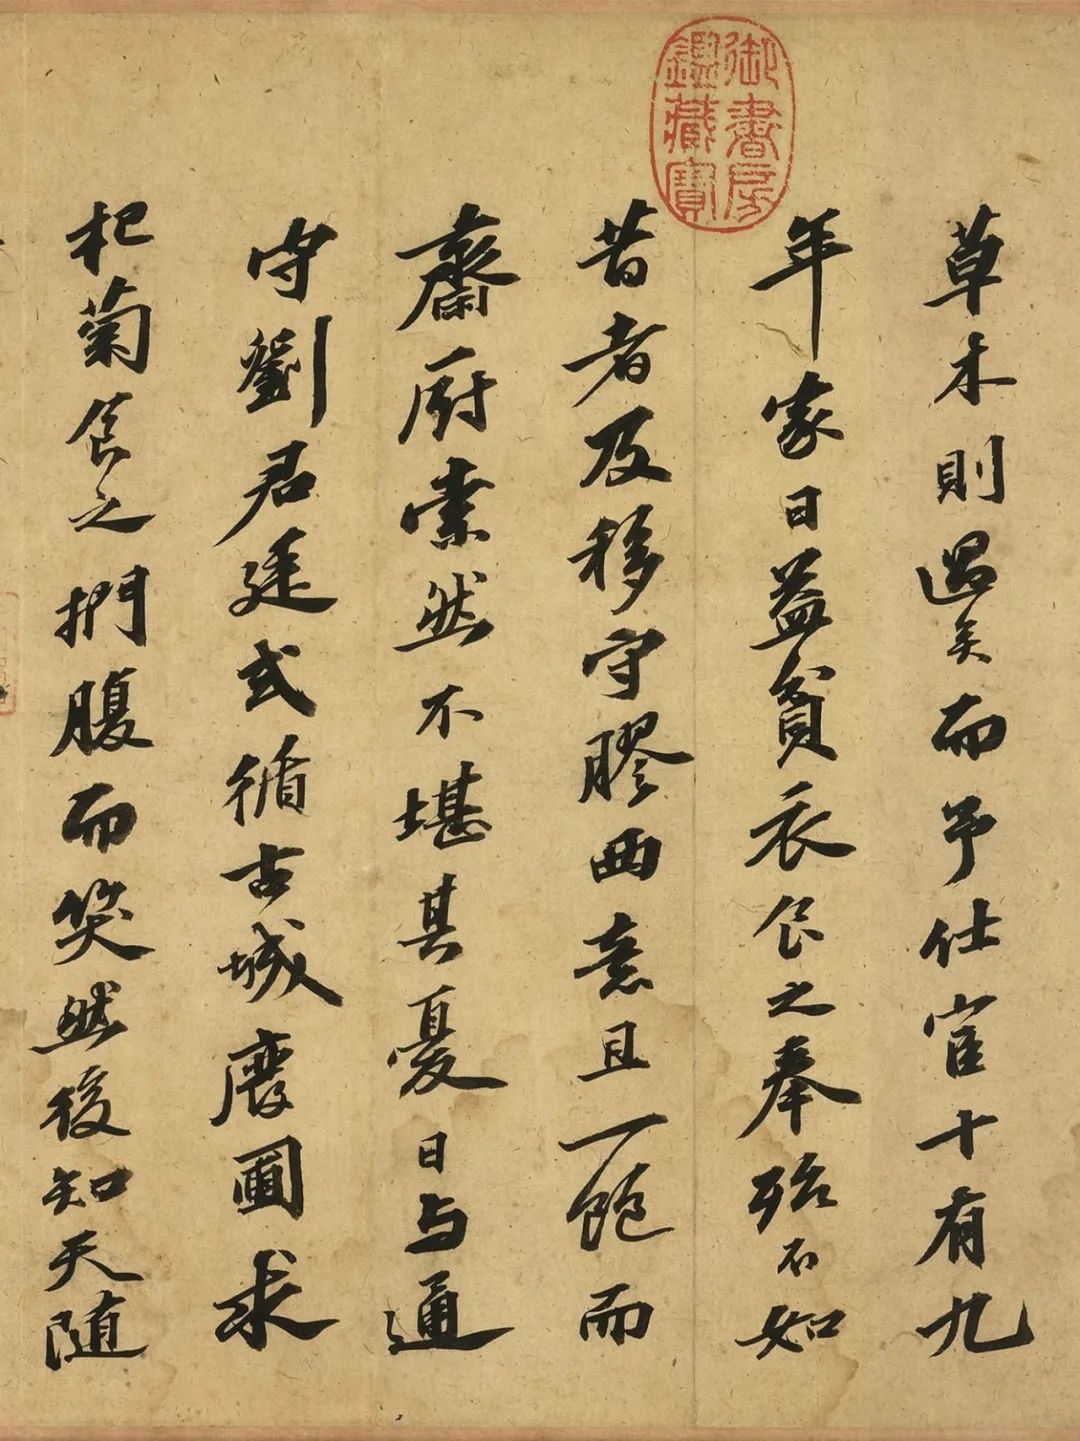 御書房
鑑藏寶
草木則過矣而予仕宦十有九
年家日益貧衣食之奉殆不如
昔者及移守膠西意且一飽而
齋厨索然不堪其憂日与通
守劉君廷式循古城廢圃求
杞菊食之捫腹而笑然後知天随